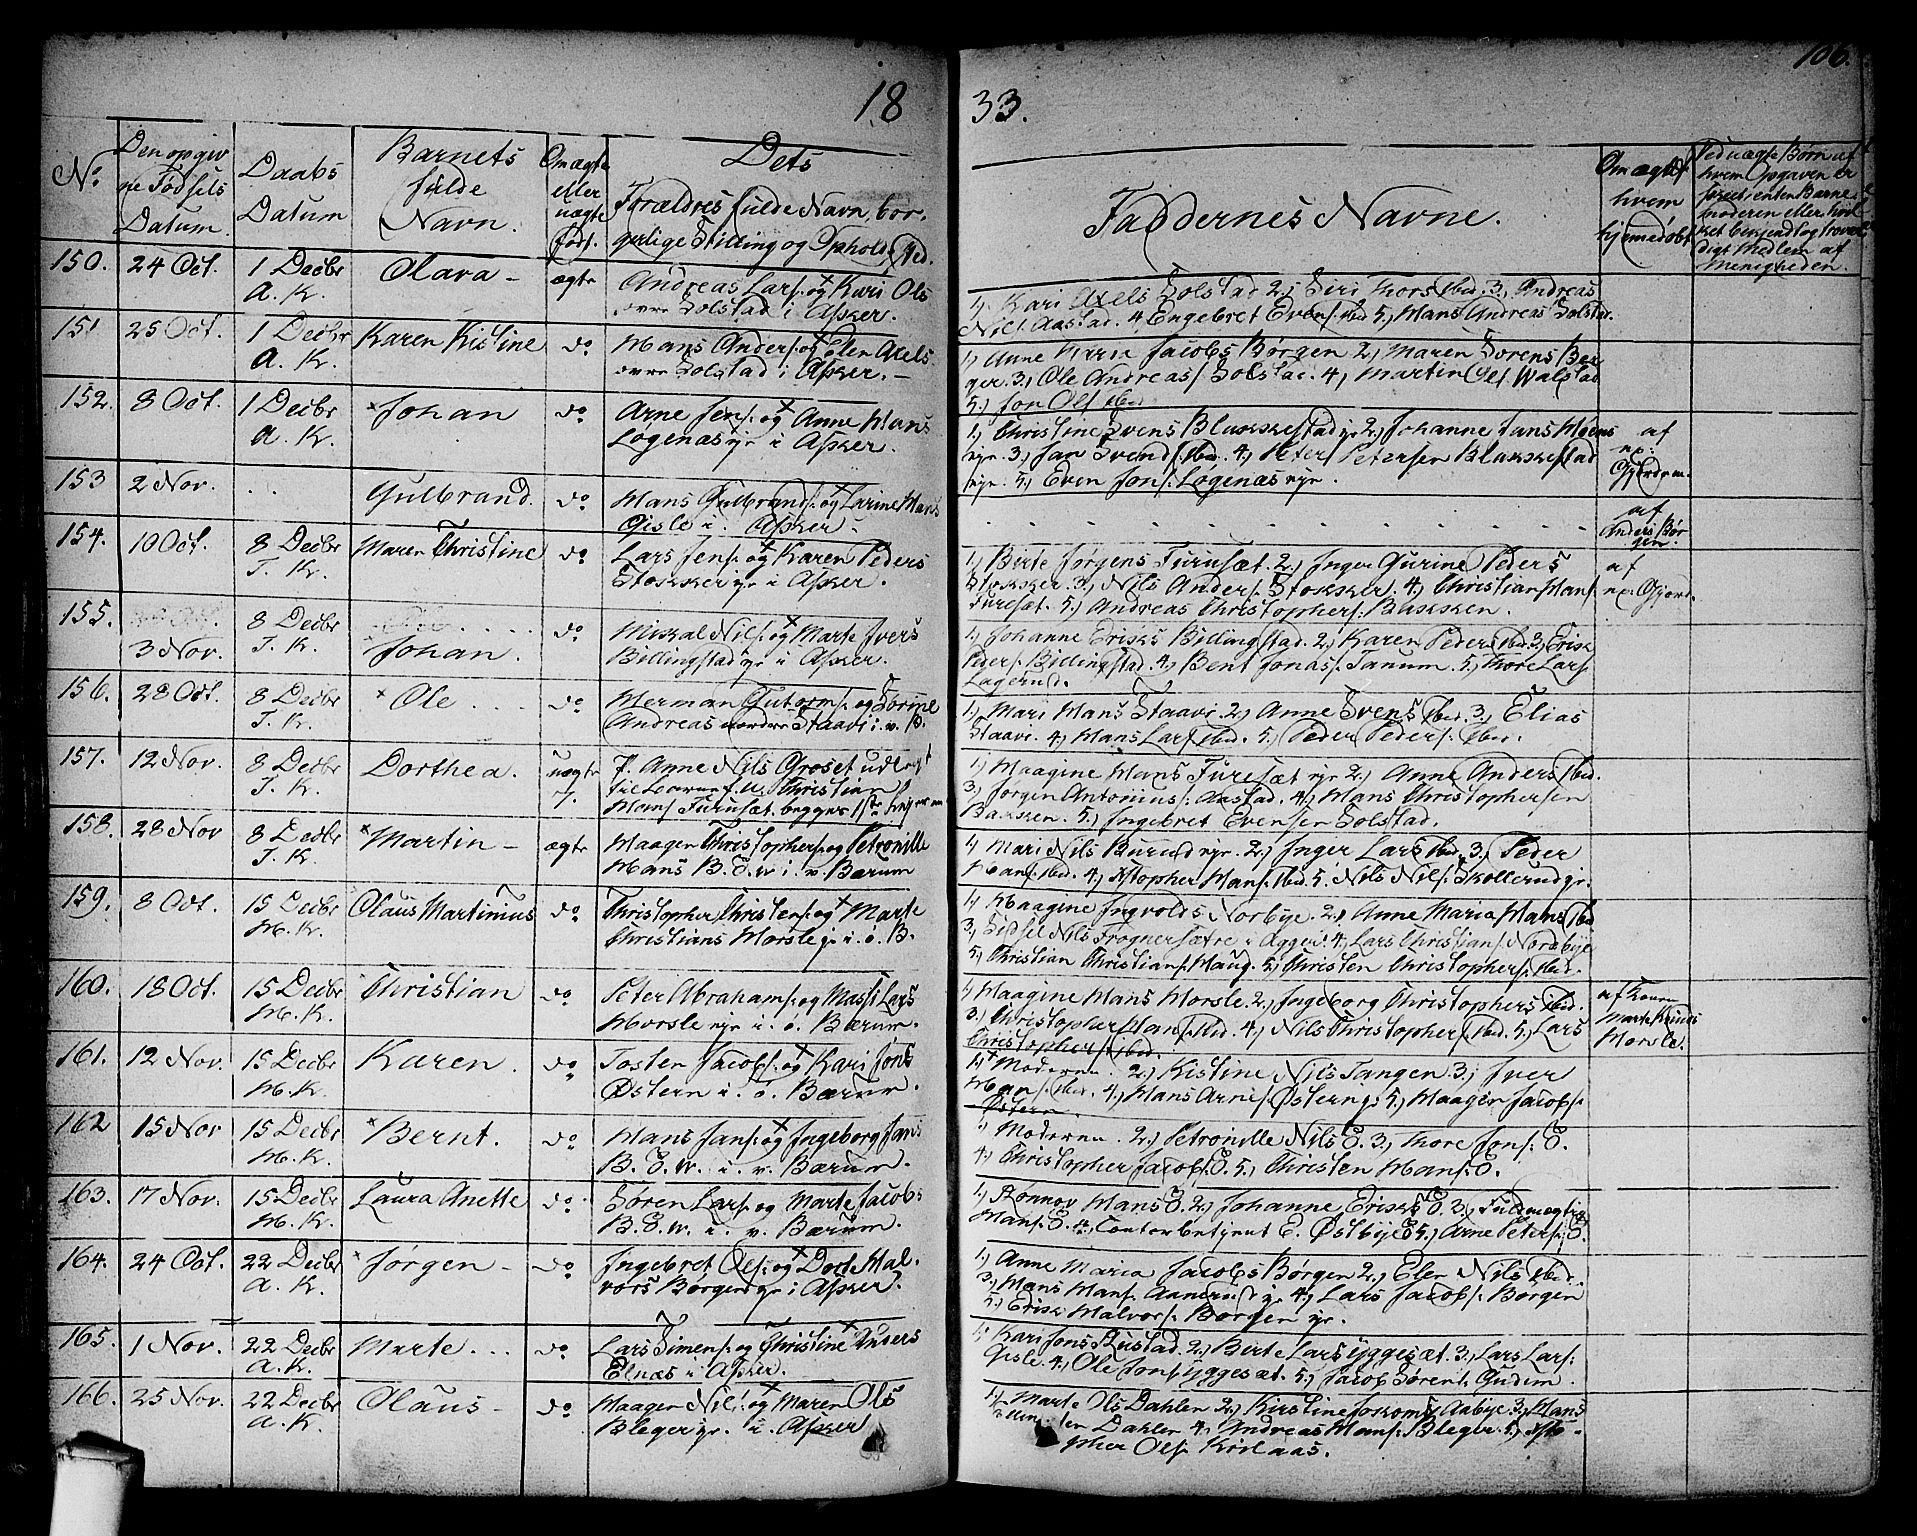 106.
18
33.
No
Den opgiv
ne Fødsels
Datum.
Daabs
Datum
Barnets
fulde
Navn.
Om ægte
eller
uægte
født.
Dets
Forældres fulde Navn, bor,
gerlige Stilling og Opholds Sted.
Faddernes Navne.
Om
hvem
hjemmedøbt
Ved uægte Børn af
hvem Opgaven er
skeet: enten Barne
moderen eller hvil
ket bekjendt og trovær
digt Medlem af
Menigheden.
150. 24 Oct. 1 Decbr A. K. Olava - ægte
Andreas Lars. og Kari Ols
øvre Solstad i Asker.
1, Kari Axels Solstad 2, Siri Thors ibid. 3, Andreas
Nils. Aastad. 4, Engebret Evens. ibid 5, Hans Andreas Solstad.
151 25 Oct. 1 Decbr A. K. Karen Kistine do
Hans Anders. og Elen Axels
øvre Solstad i Asker. -
1, Anne Kirrie Jacobs Børgen 2, Maren Sørens Ber
ger. 3, Ole Andreas. Solstad. 4, Martin Ols. Walstad
5, Jon Ols. ibid
152. 8 Oct. 1 Decbr A. K. Johan do
Arne Jens. og Anne Hans
Løgenæs yr. i Asker.
1, Christine Svens Blakkestad yr 2, Johanne Jans Høens
yr. 3, Jan Svends. ibid. 4, Peter Petersen Blakkestad
yr. 5, Even Jons. Løgenæs yr.
af
153 2 Nov. . . Gulbrand. do
Hans Gulbrands. og Larine Hans
Gisle i Asker
af
Anders Bør
gen.
154. 10 Oct. 8 Decbr T. K. Maren Christine do
Lars Jens. og Karen Peders
Stokker yr i Asker.
1, Birte Jørgens Furusæt. 2, Inger Gurine Peders
Stokker 3, Nils Anders. Stokker. 4, Christian Hans.
Furesæt. 5, Andreas Christophers. Bakken.
af
155. 3 Nov. 8 Decbr T. K. Johan. do
Mikkal Nils. og Marte Ivers
Billingstad yr i Asker.
1, Johanne Eriks Billingstad. 2, Karen Peders ibid 3, Erik
Peders. Billingstad. 4, Bent Jonas. Tanum. 5, Thore Lars.
Lagerud.
156. 28 Oct. 8 Decbr T. K. Ole . . . do
Herman Gutorms. og Sørine
Andreas nordre Staavi i. v. B.
1, Mari Hans Staavi. 2, Anne Svens ibid. 3, Elias
Staavi. 4, Hans Lars. ibid. 5, Peder Peders. ibid.
157. 12 Nov. 8 Decbr T. K. Dorthea. uægte
P. Anne Nils Groset udlagt
til Barnef. U. Christian
Hans. Furusæt. begges 1ste
1, Maagine Hans Furesæt yr 2, Anne Anders ibid.
3, Jørgen Antonius. Aastad. 4, Hans Christophersen
Bakken. 5, Ingebret Evensen Solstad.
158. 28 Nov 8 Decbr T. K. Martin - ægte
Haagen Christophers. og Petronille
Hans B. E. W i. v. Bærum
1, Mari Nils Burud yr. 2, Inger Lars ibid. 3, Peder
Hans. ibid. 4, Xstopher Hans. ibid. 5. Nils Nils. Skollerud yr.
159. 8 Oct. 15 Decbr H. K. Olaus Martinius do
Christopher Christens. og Marte
Christians Horsle yr i. ö. B.
1, Maagine Ingvolds Norbye. 2, Anne Maria Hans ibid
3, Sidsel Nils Frognersætre i Agger. 4, Lars Christians. Nordbye
5, Christian Christians. Haug. 5, Christen Christophers. ibid.
160. 18 Oct. 15 Decbr H. K. Christian do
Peter Abrahams. og Massi Lars
Horsle yr i. ö. Bærum.
1, Maagine Hans Horsle. 2, Ingeborg Christophers ibid.
3, Christopher Hans. ibid. 4, Nils Christophers. ibid. 5, Lars
Christophers. ibid.
af
Marte
Horsle.
161. 12 Nov. 15 Decbr H. K. Karen. do
Tosten Jacobs. og Kari Jons
Østern i. ö. Bærum.
1, Moderen. 2, Kistine Nils Tangen 3, Iver
Hans. ibid. 4, Hans Arnes. Østern 5, Haagen Jacobs.
Østern.
162 15 Nov 15 Decbr H. K. Bernt. do
Hans Jans. og Ingeborg Jans
B. E. W. i. v. Bærum.
1, Moderen. 2, Petronille Nils E. 3, Thore Jons. E.
4, Christopher Jacobs. E 5, Christen Hans. E.
163. 17 Nov. 15 Decbr H. K. Laura Anette do
Søren Lars. og Marte Jacobs
B. E. W. i. v. Bærum.
1, Rønnov Hans E. 2, Johanne Eriks E. 3, Fuldmægtig
Hans. E. 4, Contorbetjent E. Østbye E 5, Arne Peters. E.
164. 24 Oct. 22 Decbr A. K. Jørgen - do
Ingebret Ols. og Dorte Hal,
vors Børgen yr i Asker.
1, Anne Maria Jacobs Børgen 2, Elen Nils ibid.
3, Hans Hans. Annerud yr. 4, Lars Jacobs. Børgen
5, Erik Halvors. Børgen yr.
165. 1 Nov. 22 Decbr A. K. Marte... do
Lars Simens. og Christine Ivers
Elnæs i Asker.
1, Kari Jons Rustad. 2, Birte Lars Yggesæt. 3, Lars Lars.
Gisle. 4, Ole Jons. Yggesæt. 5, Jacob Sørens. Gudim.
166. 25 Nov. 22 Decbr A. K. Olaus - do
Haagen Nils. og Maren Ols
Bleger yr. i. Asker
1, Marte Ols Dahlen 2, Kirstine Aabye. 3, Hans
Dahlen 4, Andreas Hans. Bleger. 5, Xsto-
pher Ols. Kirlaas.